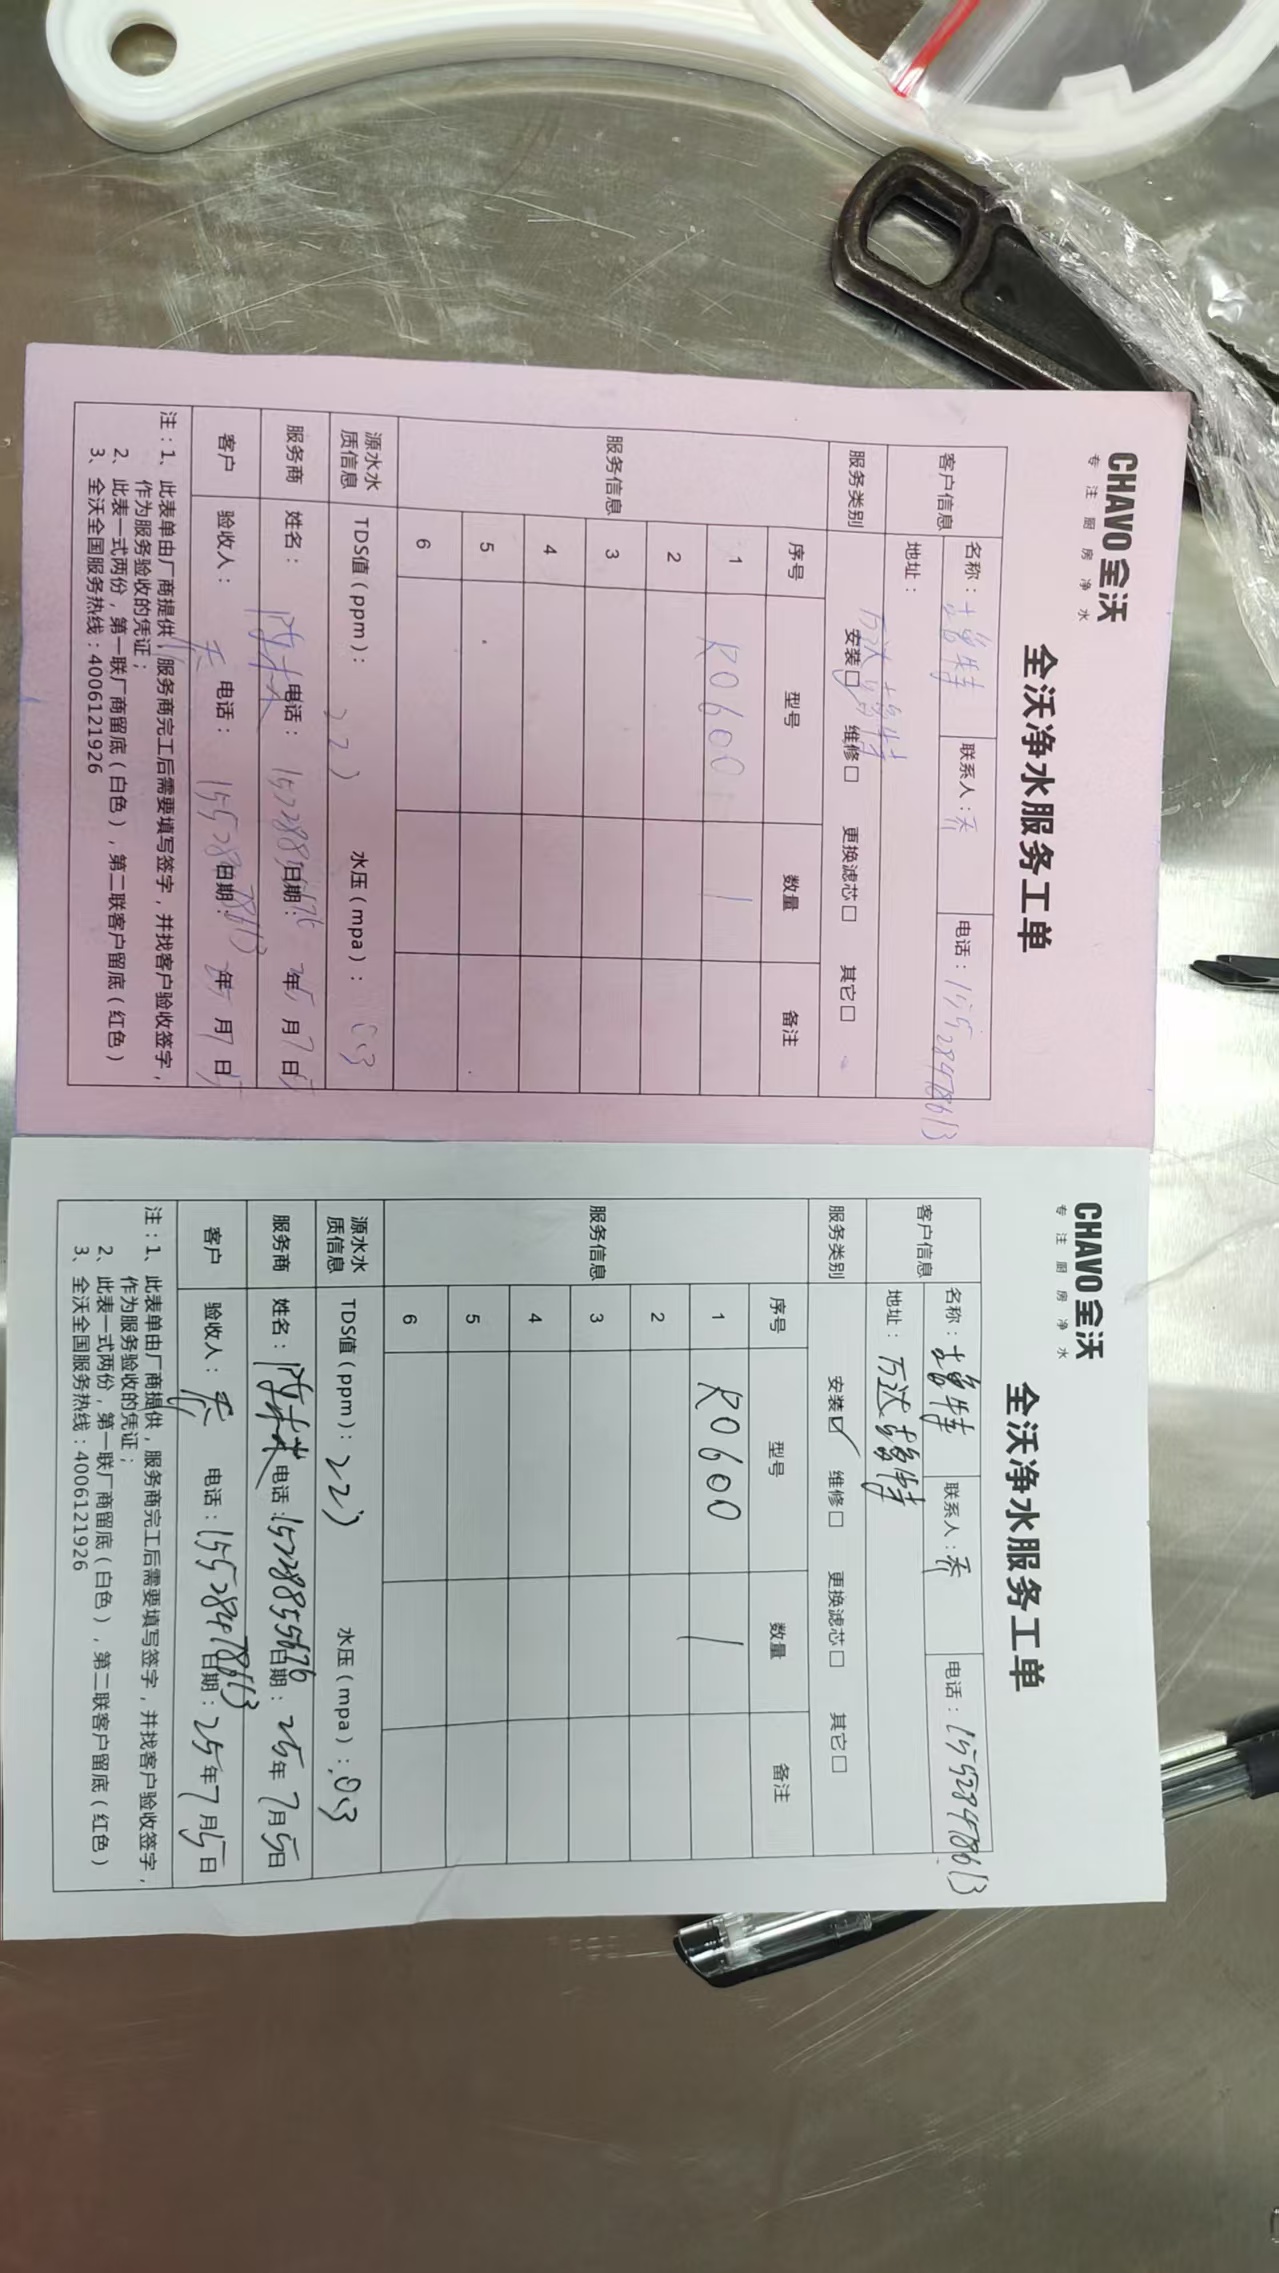 CHAVO全沃
专注厨房净水
全沃净水服务工单
客户信息 名称： 联系人：乔 电话：15528478613
地址：万达
服务类别 安装☐ 维修☐ 更换滤芯☐ 其它☐
服务信息 序号 型号 数量 备注
1 RO600 1
2
3
4
5
6
源水水质信息 TDS值（ppm）：221 水压（mpa）：0.3
服务商 姓名：陈 电话： 日期：25年7月5日
客户 验收人：乔 电话：15528478613 日期：25年7月5日
注：1、此表单由厂商提供，服务商完工后需要填写签字，并找客户验收签字，
作为服务验收的凭证；
2、此表一式两份，第一联厂商留底（白色），第二联客户留底（红色）
3、全沃全国服务热线：4006121926
CHAVO全沃
专注厨房净水
全沃净水服务工单
客户信息 名称： 联系人：乔 电话：15528478613
地址：万达
服务类别 安装☑ 维修☐ 更换滤芯☐ 其它☐
服务信息 序号 型号 数量 备注
1 RO600 1
2
3
4
5
6
源水水质信息 TDS值（ppm）：221 水压（mpa）：0.3
服务商 姓名：陈 电话：15728855676 日期：25年7月5日
客户 验收人：乔 电话：15528478613 日期：25年7月5日
注：1、此表单由厂商提供，服务商完工后需要填写签字，并找客户验收签字，
作为服务验收的凭证；
2、此表一式两份，第一联厂商留底（白色），第二联客户留底（红色）
3、全沃全国服务热线：4006121926